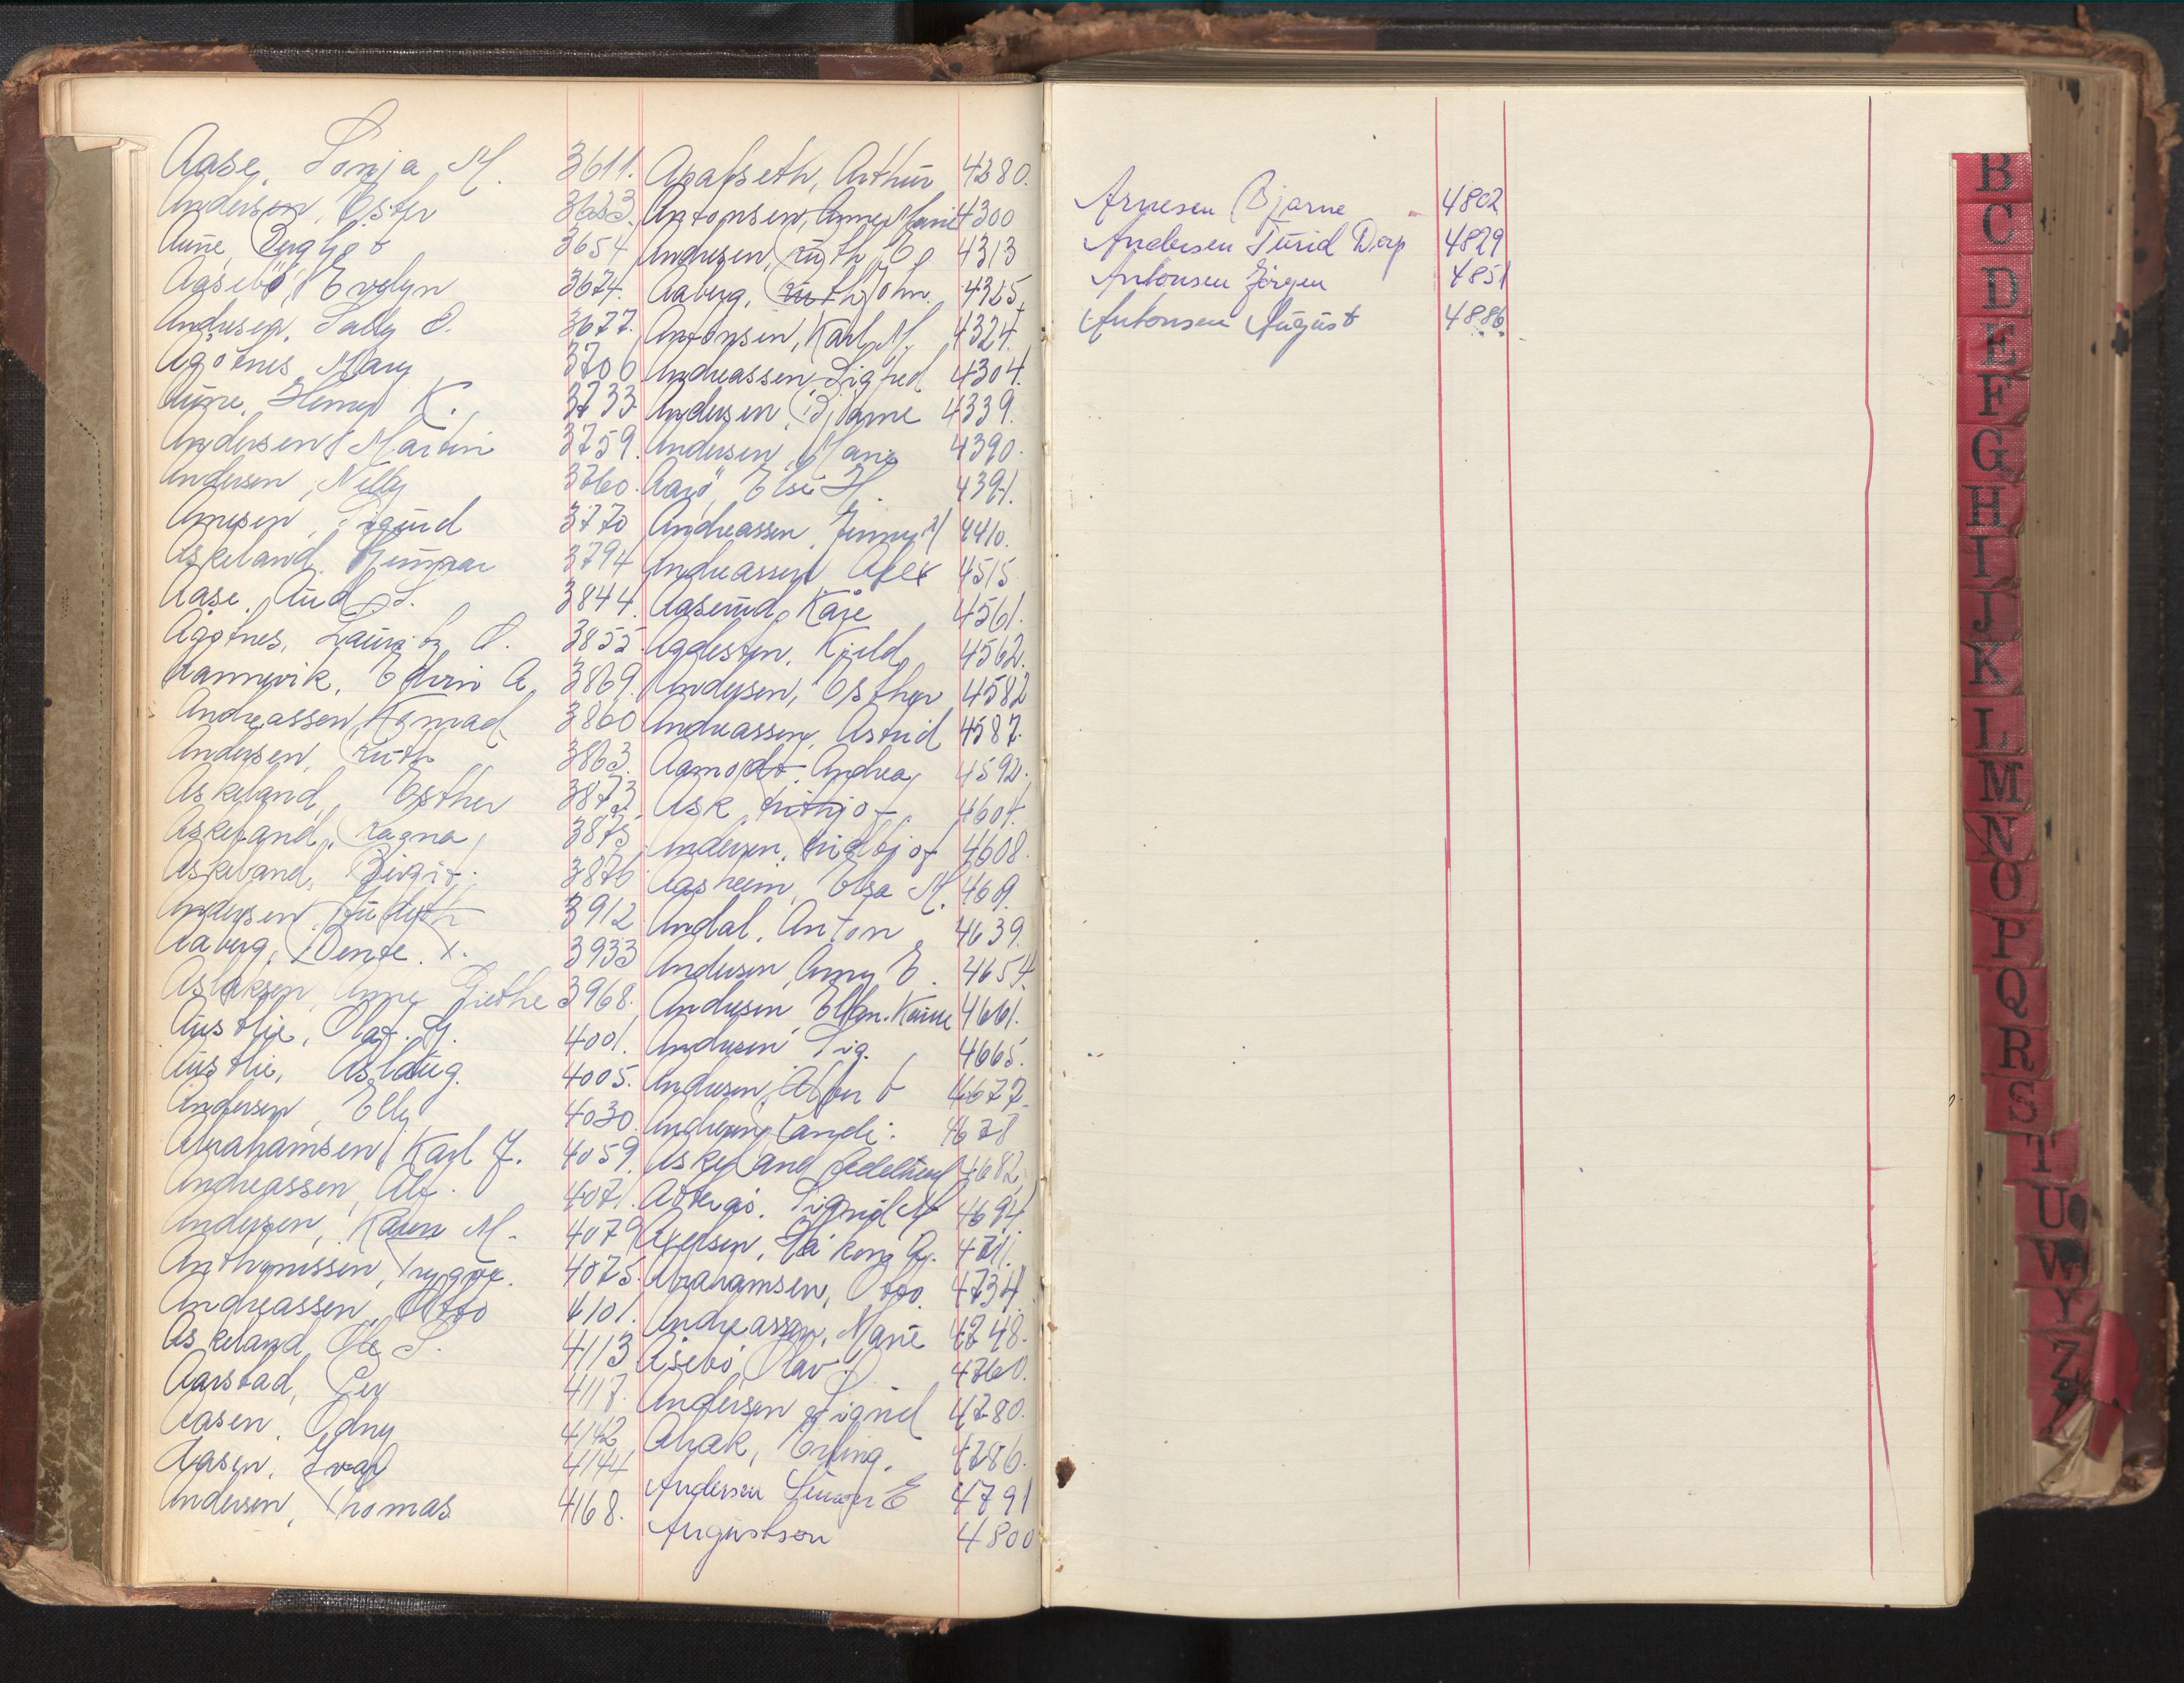 Aase, Sonja M. 3611.
Andersen, Ester 3633.
Aune, Bergljot 3654
Aasebö, Evelyn 3674.
Andersen, Sally O. 3677.
Ågotnes, Mary 3706
Aune, Henry K. 3733
Andersen, Martin 3759.
Andersen, Nelly 3760.
Arnesen, Sigurd 3770
Askeland, Gunnar 3794
Aase, Aud S. 3844.
Ågotnes, Lauritz O. 3855
Aannevik, Edvin A. 3869.
Andreassen, Konrad 3860
Andersen, Ruth 3863.
Askeland, Esther 3873
Askeland, Ragna 3875
Askeland, Birgit. 3876
Andersen, Judith 3912
Aaberg, Bente. 3933
Aslaksen, Anne Grethe 3968.
Austlie, Olaf. H. 4001.
Austlie, Aslaug. 4005.
Andersen, Elly 4030.
Abrahamsen, Karl J. 4059.
Andreassen, Alf. 4071.
Andersen, Karen M. 4079
Anthonissen, Trygve. 4075.
Andreassen, Otto 4101.
Askeland, Ole S. 4113
Aarstad, Per 4117.
Aasen, Odny 4142
Aasen, Ivar 4144
Andersen, Thomas 4168.
Arthur 4280.
Antonsen, Anne Marie 4300
Andersen, Ruth E. 4313
Aaberg, John. 4325.
Antonsen, Karl M. 4324.
Andreassen, Sigfred 4304.
Andersen, Bjarne 4339.
Andersen, 4390.
Aarö, Else H. 4391.
Andreassen, Jenny M 4410.
Andreassen, Alex 4515
Aaserud, Kåre 4561.
Agdestein, Kjeld 4562.
Andersen, Esther 4582
Andreassen, Astrid 4587.
Aamodt, Andrea 4592.
Ask, Fritjof 4604.
Andersen, Fridtjof 4608.
Aasheim, Elsa M. 469.
Andal, Anton 4639.
Andersen, Anny E. 4654.
Andersen Ellen. Karin 4661.
Andersen Sig. 4665.
Andersen, Albert 4677.
Andersen, 4678
Askeland Adelheid 4682.
Sigrid M 4694.
Axelsen, Håkon Aj. 4711.
Abrahamsen, Otto. 4734.
Andreassen, Marie 4748.
Åsebö, Olav O. 4760.
Andersen Sigrid 4780.
Erling. 4786.
Andersen E 4791
Augustson 4800
Arnesen Bjarne 4802
Andersen Turid 4829
Antonsen Jörgen 4851
Antonsen August 4886.
B
C
D
E
F
G
H
I
J
K
L
M
N
O
P
Q
R
S
T
U
W
Y
Z